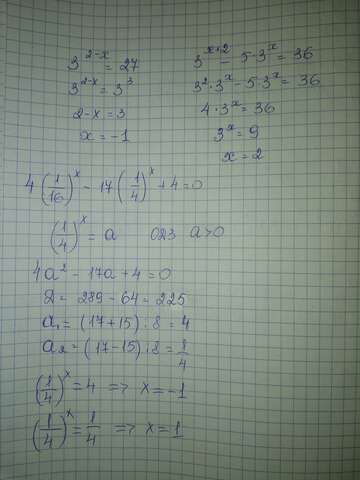 3^{2-x} = 27
3^{2-x} = 3^3
2-x = 3
x = -1
3^{x+2} - 5·3^x = 36
3^2·3^x - 5·3^x = 36
4·3^x = 36
3^x = 9
x = 2
4(1/16)^x - 17(1/4)^x + 4 = 0
(1/4)^x = a ОДЗ a>0
4a^2 - 17a + 4 = 0
D = 289 - 64 = 225
a₁ = (17+15):8 = 4
a₂ = (17-15):8 = 1/4
(1/4)^x = 4 => x = -1
(1/4)^x = 1/4 => x = 1